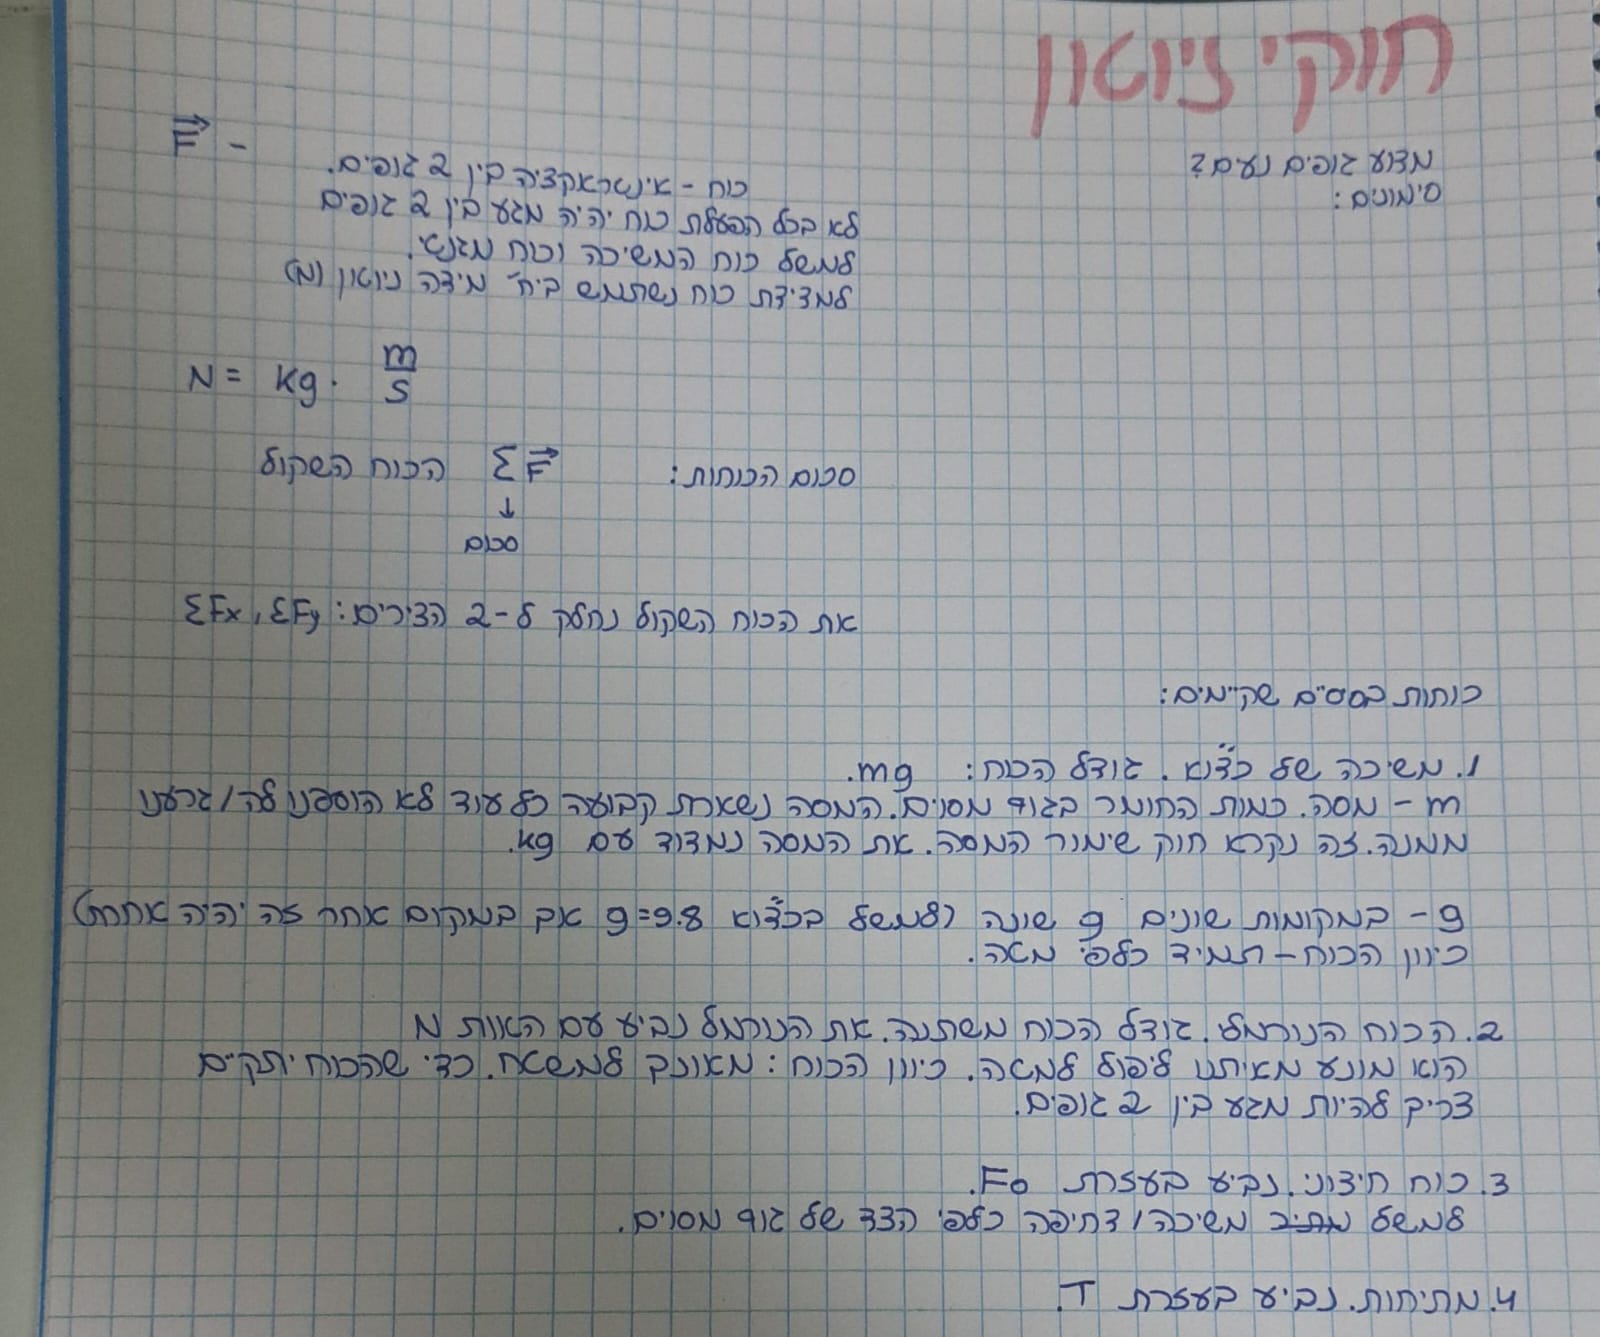 חוקי ניוטון
מדוע גופים נעים?
סימונים:
F⃗ -
כוח - אינטראקציה בין 2 גופים.
לא בכל הפעלת כוח יהיה מגע בין 2 גופים
למשל כוח המשיכה וכוח מגנטי.
למדידת כוח נשתמש ביח' מידה ניוטון (N)
N = kg · m/s
סכום הכוחות: ΣF⃗ הכוח השקול
↓
סכום
את הכוח השקול נחלק ל-2 הצירים: ΣFx, ΣFy
כוחות בסיסים שקיימים:
1. משיכה של כדו"א. גודל הכוח: mg.
m - מסה. כמות החומר בגוף מסוים. המסה נשארת קבועה כל עוד לא הוספנו לה/גרענו
ממנה. זה נקרא חוק שימור המסה. את המסה נמדוד עם kg.
g - במקומות שונים g שונה (למשל בכדו"א g=9.8 אך במקום אחר זה יהיה אחרת)
כיוון הכוח - תמיד כלפי מטה.
2. הכוח הנורמלי. גודל הכוח משתנה. את הנורמל נביע עם האות N
הוא מונע מאיתנו ליפול למטה. כיוון הכוח: מאונך למשטח. כדי שהכוח יתקיים
צריך להיות מגע בין 2 גופים.
3. כוח חיצוני. נביע בעזרת Fo.
למשל משיכה/דחיפה כלפי הצד של גוף מסוים.
4. מתיחות. נביע בעזרת T.